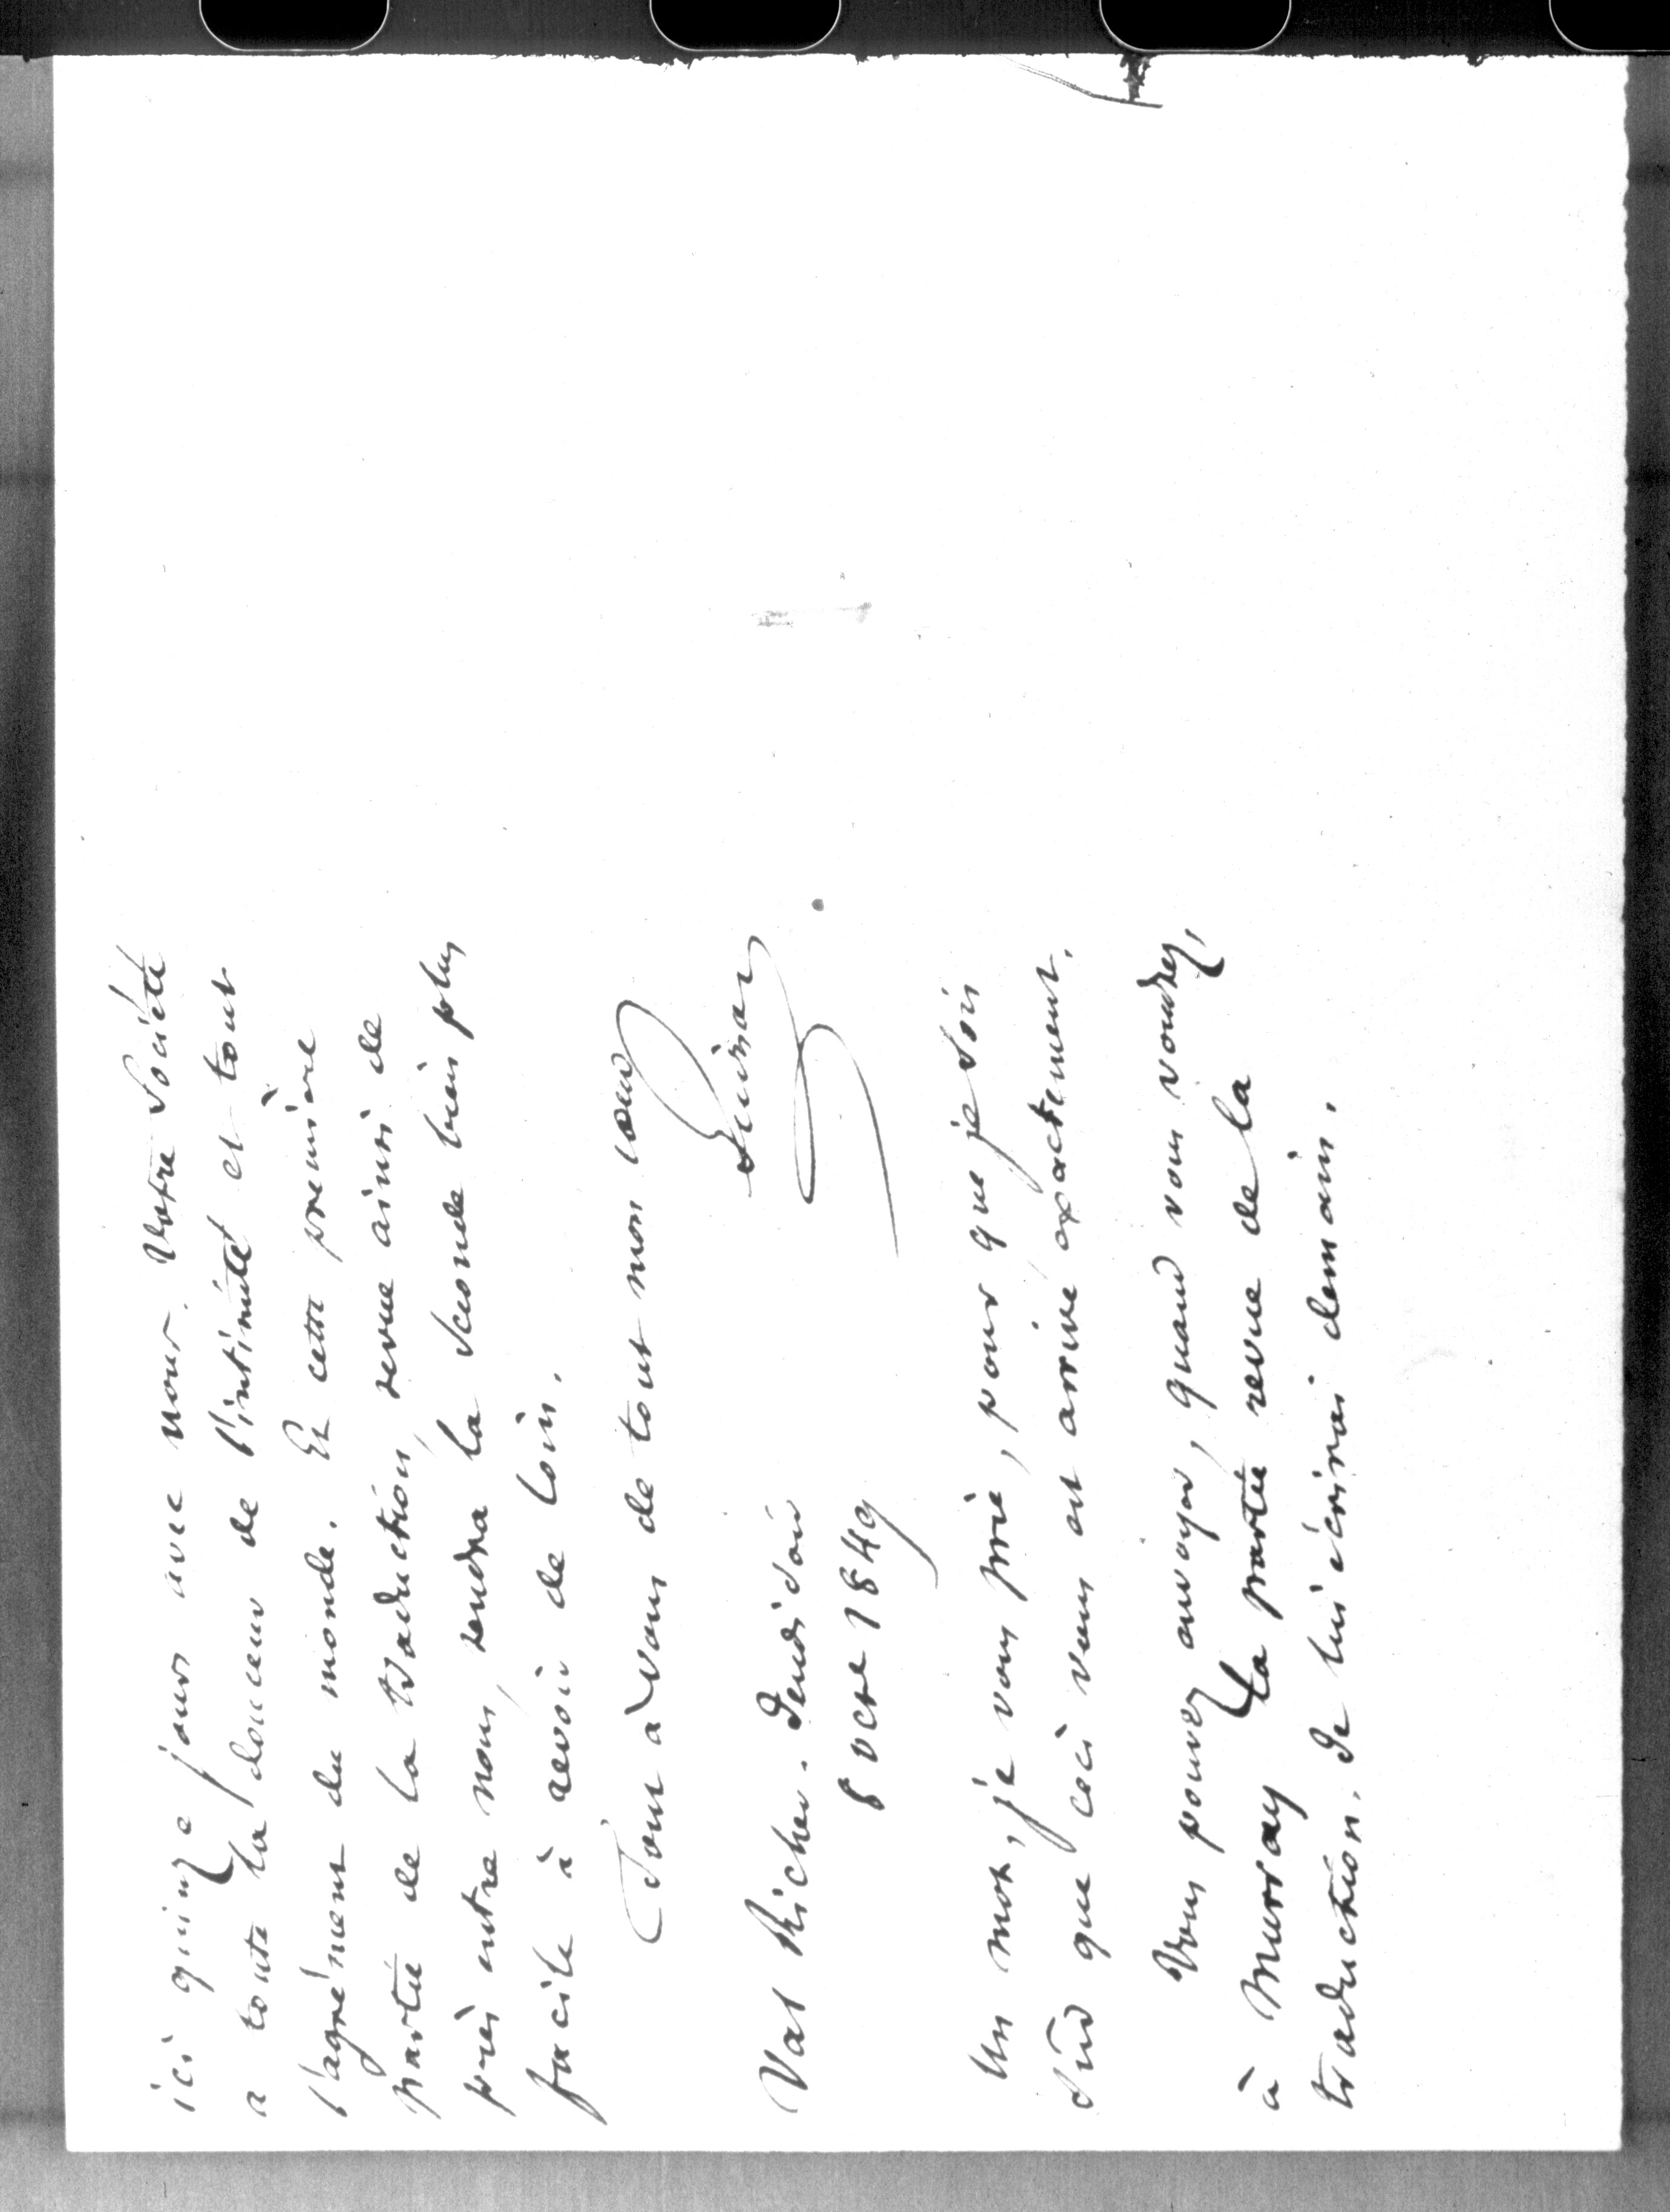 ici quinze jours avec nous. Votre Société
a toute la douceur de l'intimité et tout
l'agrément du monde. Et cette première
partie de la traduction, revue ainsi de
près entre nous, rendra la seconde bien plus
facile à revoir de loin.
Tout à vous de tout mon coeur
Guizot
Val Richer. Jeudi soir
8 octe 1849
Un mot, je vous prie, pour que je sois
sûr que ceci vous est arrivé exactement.
Vous pouvez envoyer, quand vous voudrez,
à Murray la partie revue de la
traduction. Je lui écrirai demain.